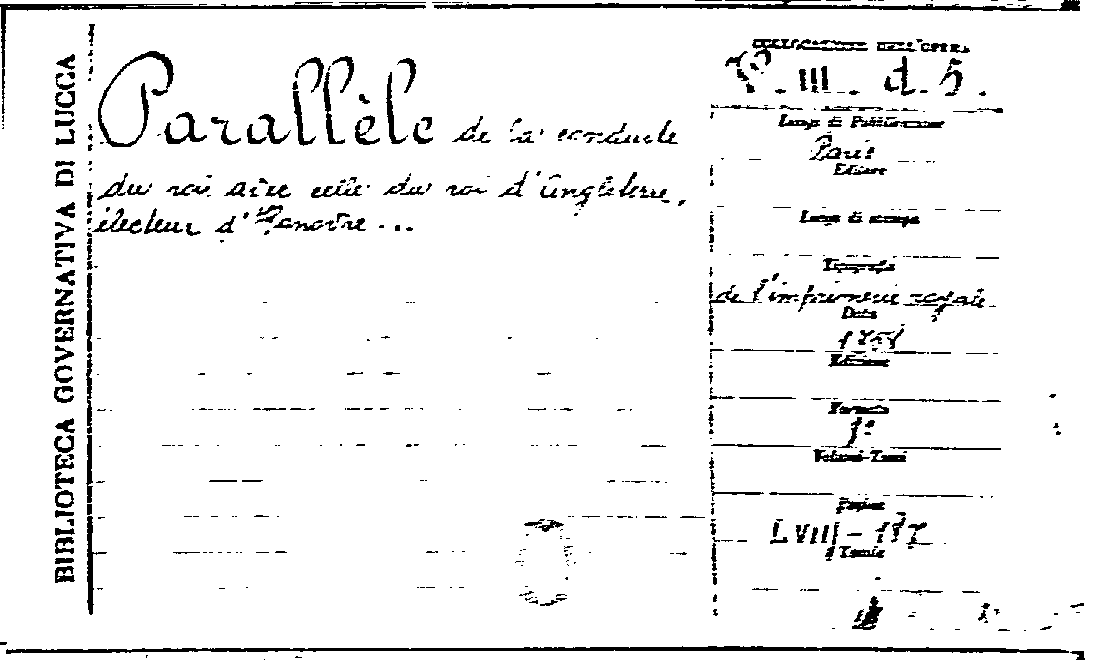 BIBLIOTECA GOVERNATIVA DI LUCCA
Parallèle de la conduite
du roi avec celle du roi d'Angleterre,
électeur d'Hanovre ...
COLLOCAZIONE DELL'OPERA
III. d. 5.
Luogo di Pubblicazione
Paris
Editore
Luogo di stampa
Tipografia
de l'imprimerie royale
Data
Edizione
Formato
Volumi-Tomi
Pagine
LVIII -